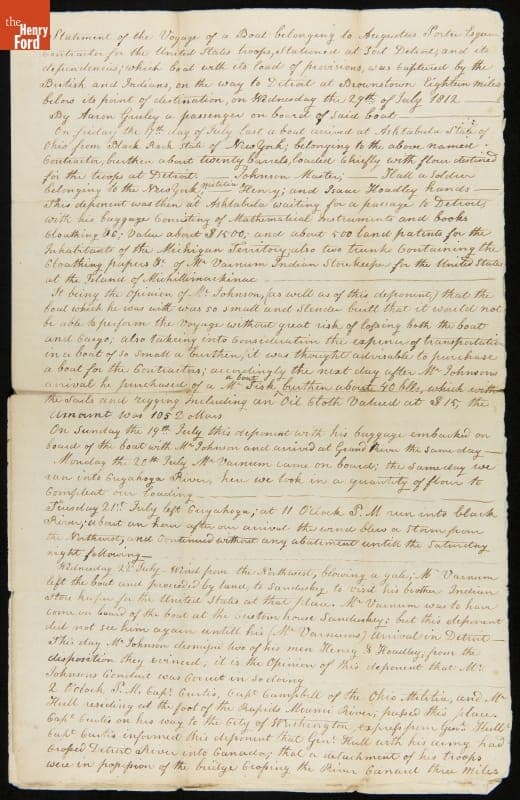 the
Henry
Ford
Statement of the Voyage of a Boat belonging to Augustus Porter Esqur
Contractor for the United States troops, Stationed at Fort Detroit; and its
dependencies; which boat with its load of provisions, was captured by the
British and Indians, on the way to Detroit at Brownstown Eighteen miles
below its point of destination, on Wednesday the 29th of July 1812
By Aaron Greeley a passenger on board of said boat
On friday the 17th day of July last a boat arrived at Ashtabula State of
Ohio from Black Rock State of New York; belonging to the above named
Contractor, burthen about twenty barrels, loaded chiefly with flour destined
for the troops at Detroit. Johnson Master; Hall a Soldier
belonging to the New York militia Henry; and Isaac Hoadley hands
This deponent was then at Ashtabula waiting for a passage to Detroit;
with his baggage Consisting of Mathematical Instruments and books
Cloathing &c; Value about $1500; and about 500 land patents for the
Inhabitants of the Michigan Territory; also two trunk Containing the
Cloathing papers &c of Mr Varnum Indian Storekeeper for the United States
at the Island of Michillimackinac
It being the opinion of Mr Johnson, (as well as of this deponent) that the
boat which he was with was so small and Slender built that it would not
be able to perform the Voyage without great risk of loosing both the boat
and Cargo; also takeing into Consideration the expence of transportation
in a boat of so Small a burthen; it was thought advisable to purchase
a boat for the Contractors; accordingly the next day after Mr Johnsons
arrival he purchased of a Mr Fisk a boat burthen about 40 bbls, which with
the Sails and rigging Including an Oil Cloth Valued at $15, the
amount was 105 Dollars
On Sunday the 19th July this deponent with his baggage embarked on
board of the boat with Mr Johnson and arrived at Grand River the same day
Monday the 20th July Mr Varnum came on board; the same day we
ran into Cuyahoga River, here we took in a quantity of flour to
Compleat our loading
Tuesday 21st July left Cuyahoga; at 11 OClock P.M run into black
River; about an hour after our arrival the wind blew a Storm from
the Northwest, and Continued without any abatement untill the Saturday
night following
Wednesday 22d July Wind from the Northwest, blowing a gale; Mr Varnum
left the boat and proceeded by land, to Sandusky to visit his brother Indian
Store keeper for the United States at that place. Mr Varnum was to have
come on board of the boat at the Custom house Sandusky; but this deponent
did not see him again untill his (Mr Varnums) arrival in Detroit
This day Mr Johnson dismissed two of his men Henry & Hoadley, from the
disposition they evinced; it is the Opinion of this deponent that Mr
Johnsons Conduct was Correct in so doing
2 OClock P.M. Capt Curtis, Capt Campbell of the Ohio Militia, and Mr
Hull residing at the foot of the Rapids Miami River; passed this place
Capt Curtis on his way to the City of Washington express from Genl Hull
Capt Curtis informed this deponent that Genl Hull with his army had
Crossed Detroit River into Canada; that a detachment of his troops
were in possession of the bridge Crossing the River Canard three Miles